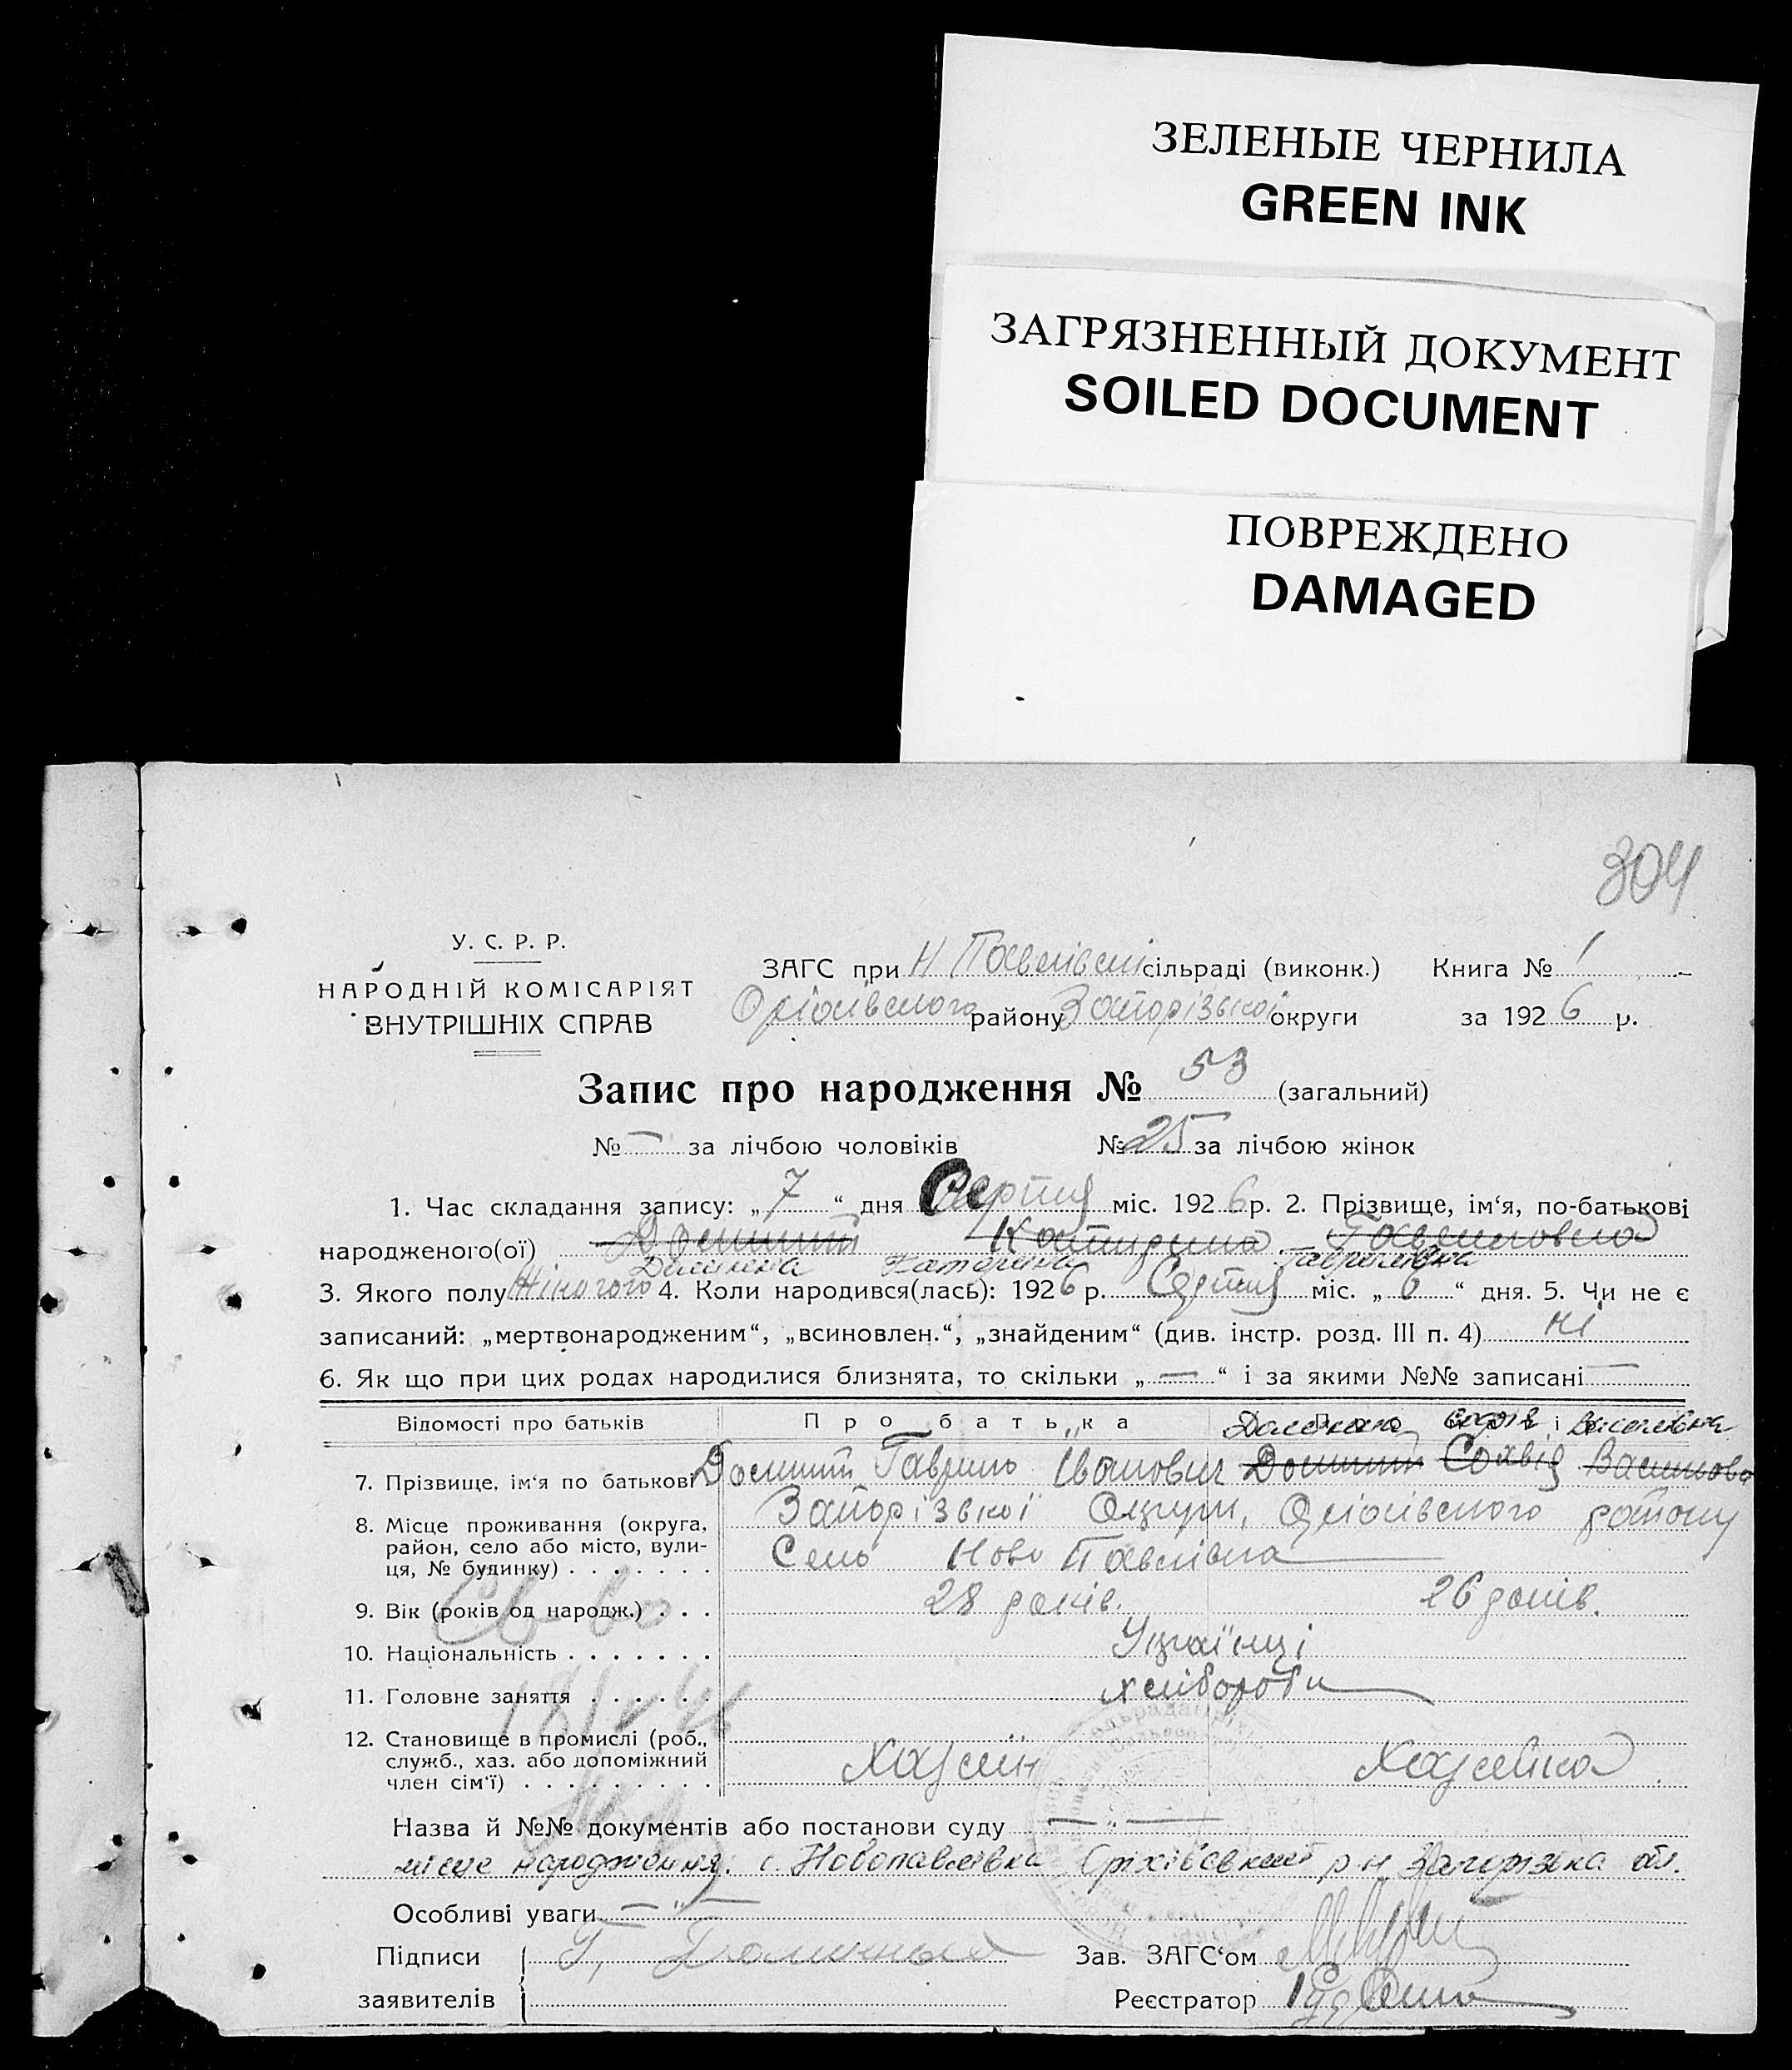 ЗЕЛЕНЫЕ ЧЕРНИЛА
GREEN INK
ЗАГРЯЗНЕННЫЙ ДОКУМЕНТ
SOILED DOCUMENT
ПОВРЕЖДЕНО
DAMAGED
304
У. С. Р. Р.
НАРОДНІЙ КОМІСАРІЯТ
ВНУТРІШНІХ СПРАВ
ЗАГС при Н Павлівскі сільраді (виконк.) Книга № 1
Оріхівського району Запорізької округи за 1926 р.
Запис про народження № 53 (загальний)
№ — за лічбою чоловіків № 25 за лічбою жінок
1. Час складання запису: „ 7 “ дня Серпня міс. 1926 р. 2. Прізвище, ім‘я, по-батькові
народженого(ої) Катирина Гавриловна
Катерина Гаврилівна
3. Якого полу Жіночого 4. Коли народився(лась): 1926 р. Серпня міс. „ 6 “ дня. 5. Чи не є
записаний: „мертвонародженим“, „всиновлен.“, „знайденим“ (див. інстр. розд. III п. 4) ні
6. Як що при цих родах народилися близнята, то скільки „ — “ і за якими №№ записані —
Відомості про батьків Про батька Софія Василівна
7. Прізвище, ім‘я по батькові Гаврило Іванович Сохвія
8. Місце проживання (округа, район, село або місто, вулиця, № будинку) . . . . . . . Запорізької Округи, Оріхівського району
Село Ново Павлівка
9. Вік (років од народж.) . . . 28 років. 26 років.
10. Національність . . . . . . . Українці
11. Головне заняття . . . . . . хлібороби
12. Становище в промислі (роб., служб., хаз. або допоміжний член сім‘ї) . . . . . . . . . Хазяїн Хазяйка
Назва й №№ документів або постанови суду — „ —
місце народження. с. Новопавлівка Оріхівський р-н Запорізька обл.
Особливі уваги — „ —
Підписи Г, Зав. ЗАГС‘ом
заявителів Реєстратор